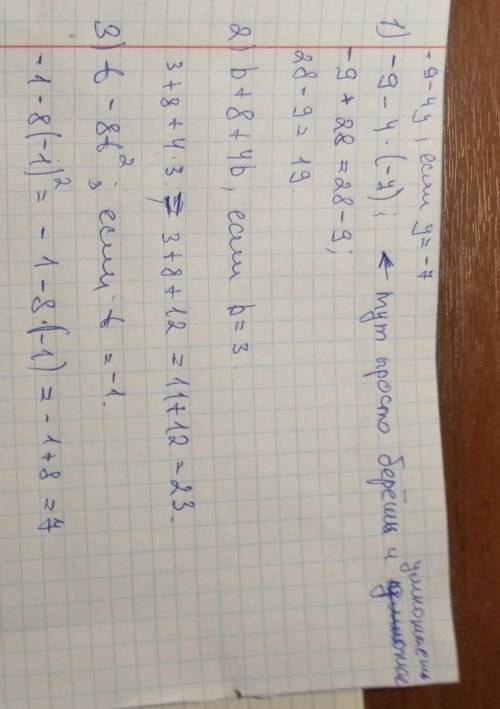 -9-4y, если y=-7
1) -9-4·(-7); ← тут просто берёшь и умножаешь
-9+28=28-9;
28-9=19.
2) b+8+4b, если b=3.
3+8+4·3.=3+8+12=11+12=23.
3) t-8t²; если t=-1.
-1-8(-1)²=-1-8·(-1)=-1+8=7